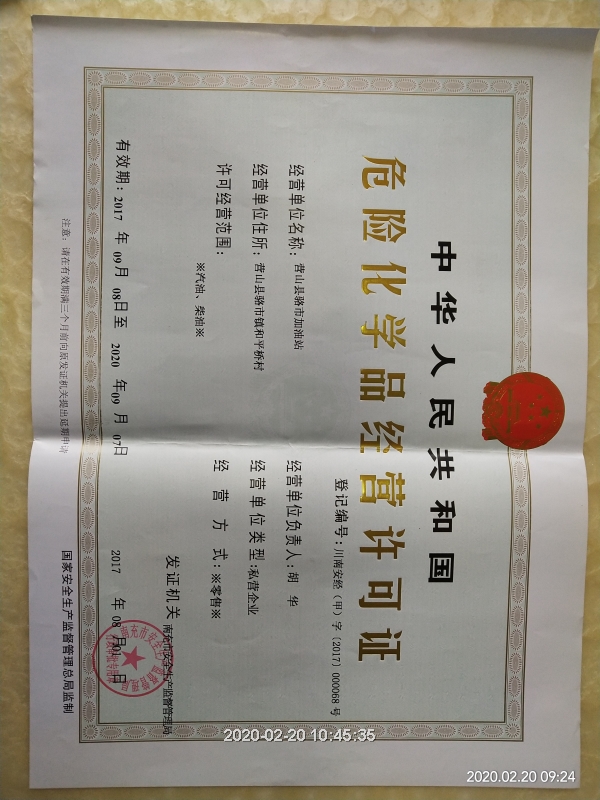 中华人民共和国
危险化学品经营许可证
登记编号：川南安经（甲）字〔2017〕000068号
经营单位名称：营山县骆市加油站
经营单位负责人：胡 华
经营单位住所：营山县骆市镇和平桥村
经营单位类型：私营企业
许可经营范围：
※汽油、柴油※
经 营 方 式：※零售※
发证机关 南充市安全生产监督管理局
有效期：2017 年 09月 08日至 2020 年09 月 07日
2017 年 08 月01 日
注意：请在有效期满三个月前向原发证机关提出延期申请
国家安全生产监督管理总局监制
南充市安全生产监督管理局
2020-02-20 10:45:35
2020.02.20 09:24